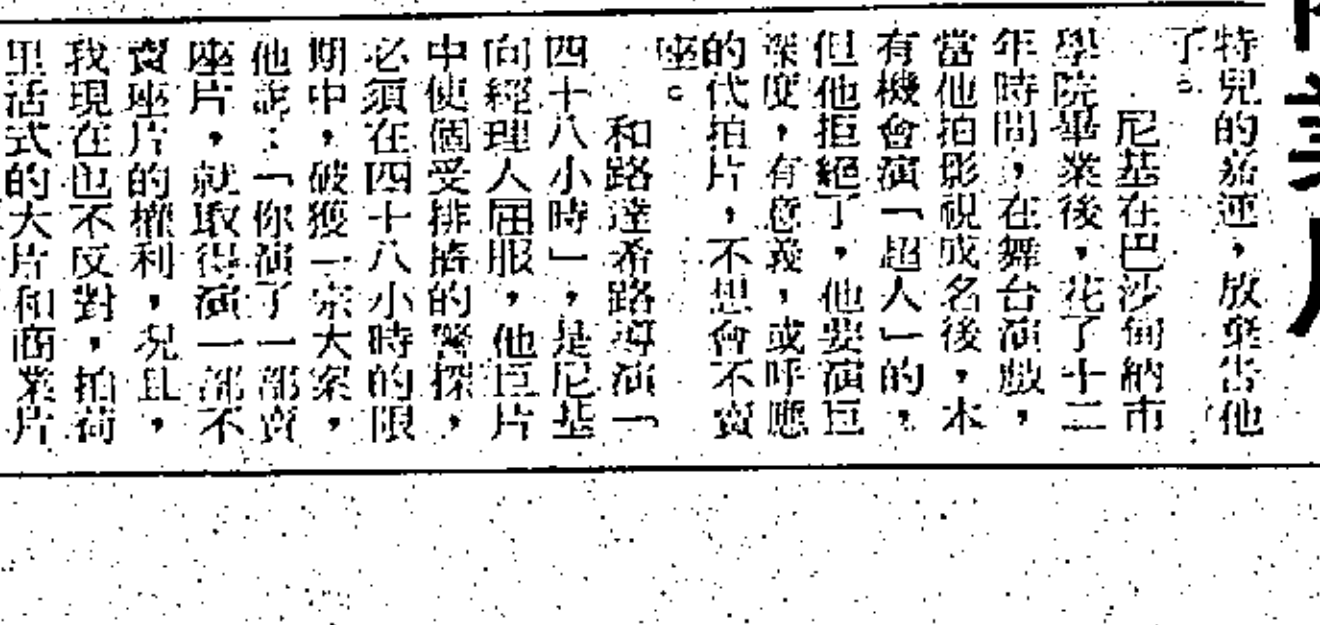 特兒的嘉運，放棄當他
了。
尼基在巴沙甸納市
學院畢業後，花了十二
年時間，在舞台演戲，
當他拍影視成名後，本
有機會演「超人」的，
但他拒絕了，他要演巨
深度，有意義，或呼應
的代拍片，不想會不賣
座。
和路達希路導演「
四十八小時」，是尼基
向經理人屈服，他巨片
中使個受排擠的警探，
必須在四十八小時的限
期中，破獲一宗大案，
他說：「你演了一部賣
座片，就取得演一部不
賣座片的權利，況且，
我現在也不反對，拍荷
里活式的大片和商業片